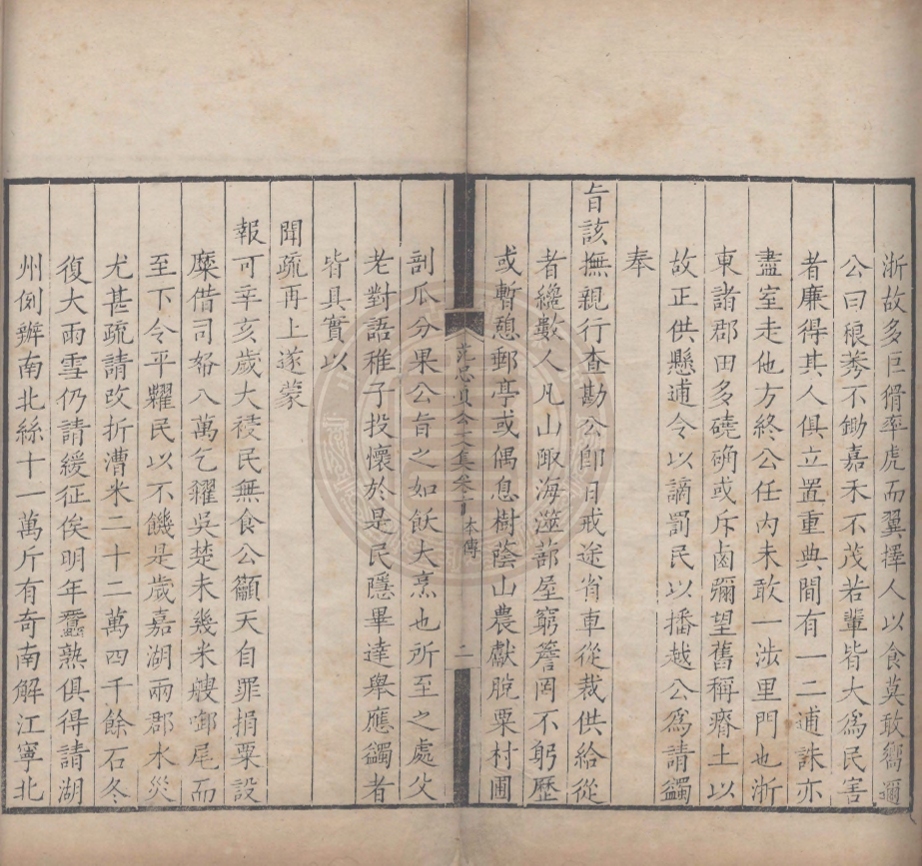 浙故多巨猾率虎而翼擇人以食莫敢嚮邇
公曰稂莠不鋤嘉禾不茂若輩皆大為民害
者廉得其人俱立置重典間有一二逋誅亦
盡室走他方終公任內未敢一涉里門也浙
東諸郡田多磽确或斥鹵彌望舊稱瘠土以
故正供懸逋令以謫罰民以播越公為請蠲
奉
旨該撫親行查勘公卽日戒途省車從裁供給從
者纔數人凡山陬海澨蔀屋窮簷罔不躬歷
或暫憩郵亭或偶息樹蔭山農獻脫粟村圃
范忠貞公文集卷首 本傳 二
剖瓜分果公旨之如飫大烹也所至之處父
老對語稚子投懷於是民隱畢達舉應蠲者
皆具實以
聞疏再上遂蒙
報可辛亥歲大祲民無食公籲天自罪捐粟設
糜借司帑八萬乞糴吳楚未幾米艘啣尾而
至下令平糶民以不饑是歲嘉湖兩郡水災
尤甚疏請改折漕米二十二萬四千餘石冬
復大雨雪仍請緩征俟明年蠶熟俱得請湖
州例辦南北絲十一萬斤有奇南解江寧北